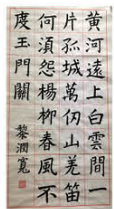 黄河遠上白雲間一
片孤城萬仞山羌笛
何須怨楊柳春風不
度玉門關
黎澗寬